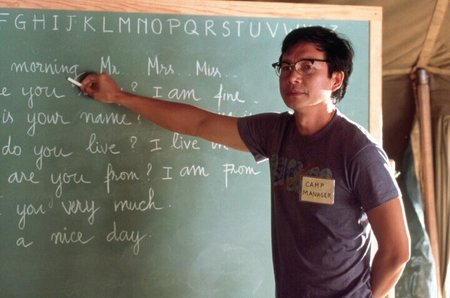 FGHIJKLMNOPQRSTUVWXYZ
morning Mr. Mrs. Miss..
you ? I am fine.
is your name?
do you live? I live in
are you from? I am from
you very much.
a nice day.
CAMP
MANAGER